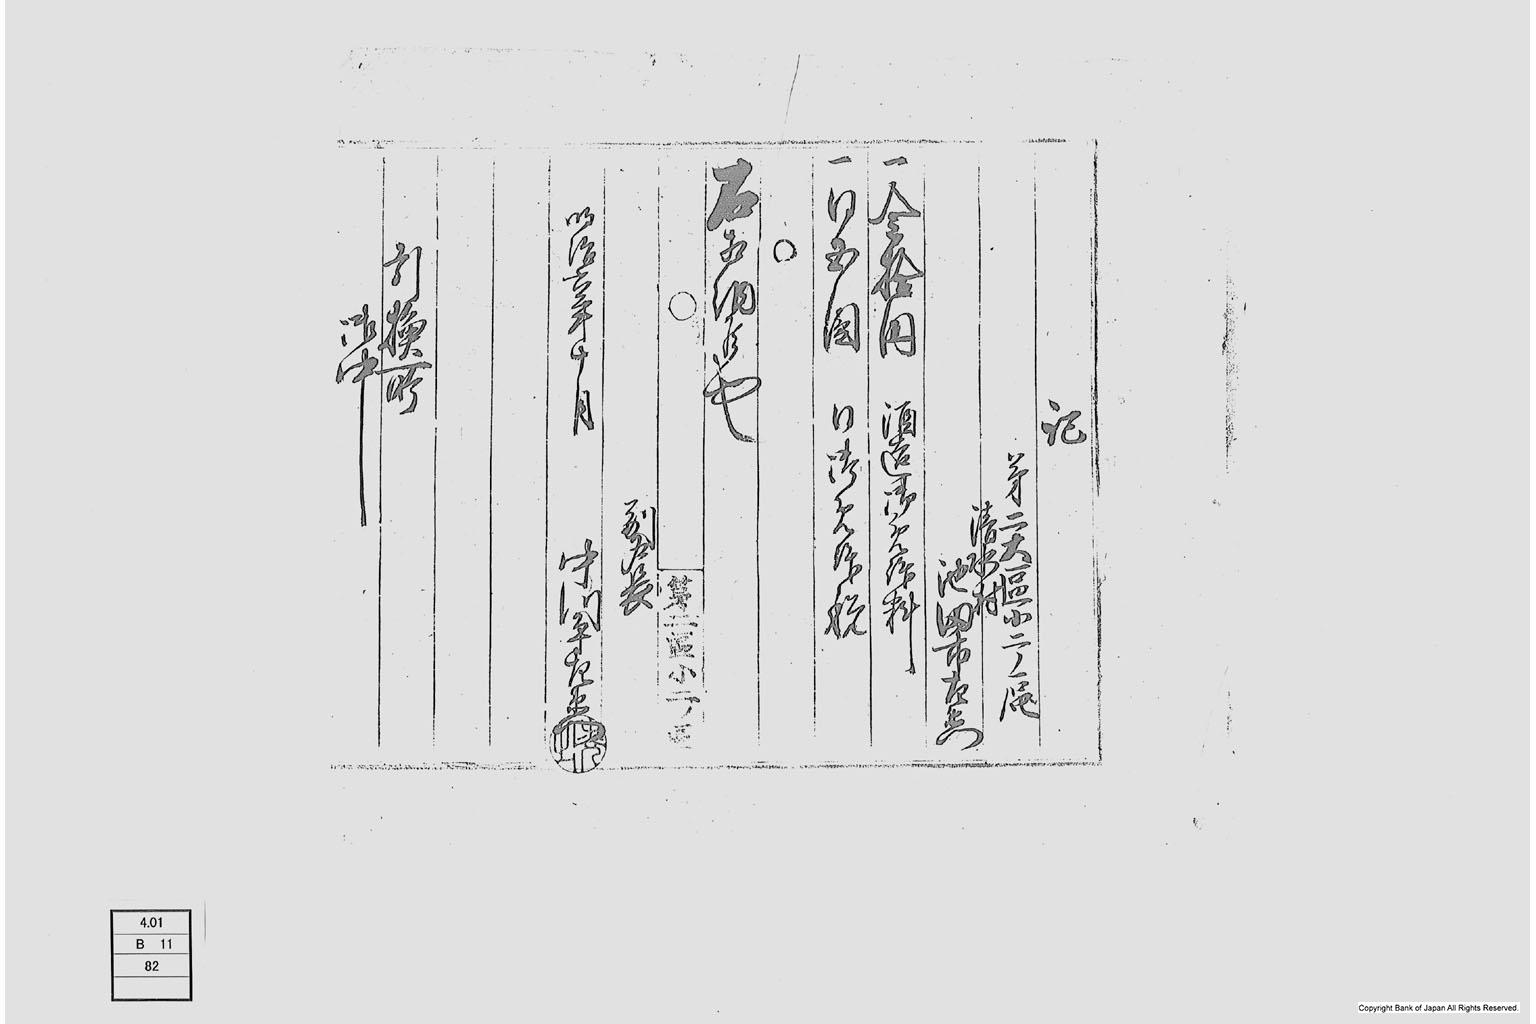 記
第二大區小二ノ區
清水村
池田市左衛門
一金拾円 酒造御免許料
一同五圓 同御免許税
右書面之通也
第二區小二ノ區
副戸長
明治六年十月 中澤平左衛門
引換所
御中
4.01
B 11
82
Copyright Bank of Japan All Rights Reserved.